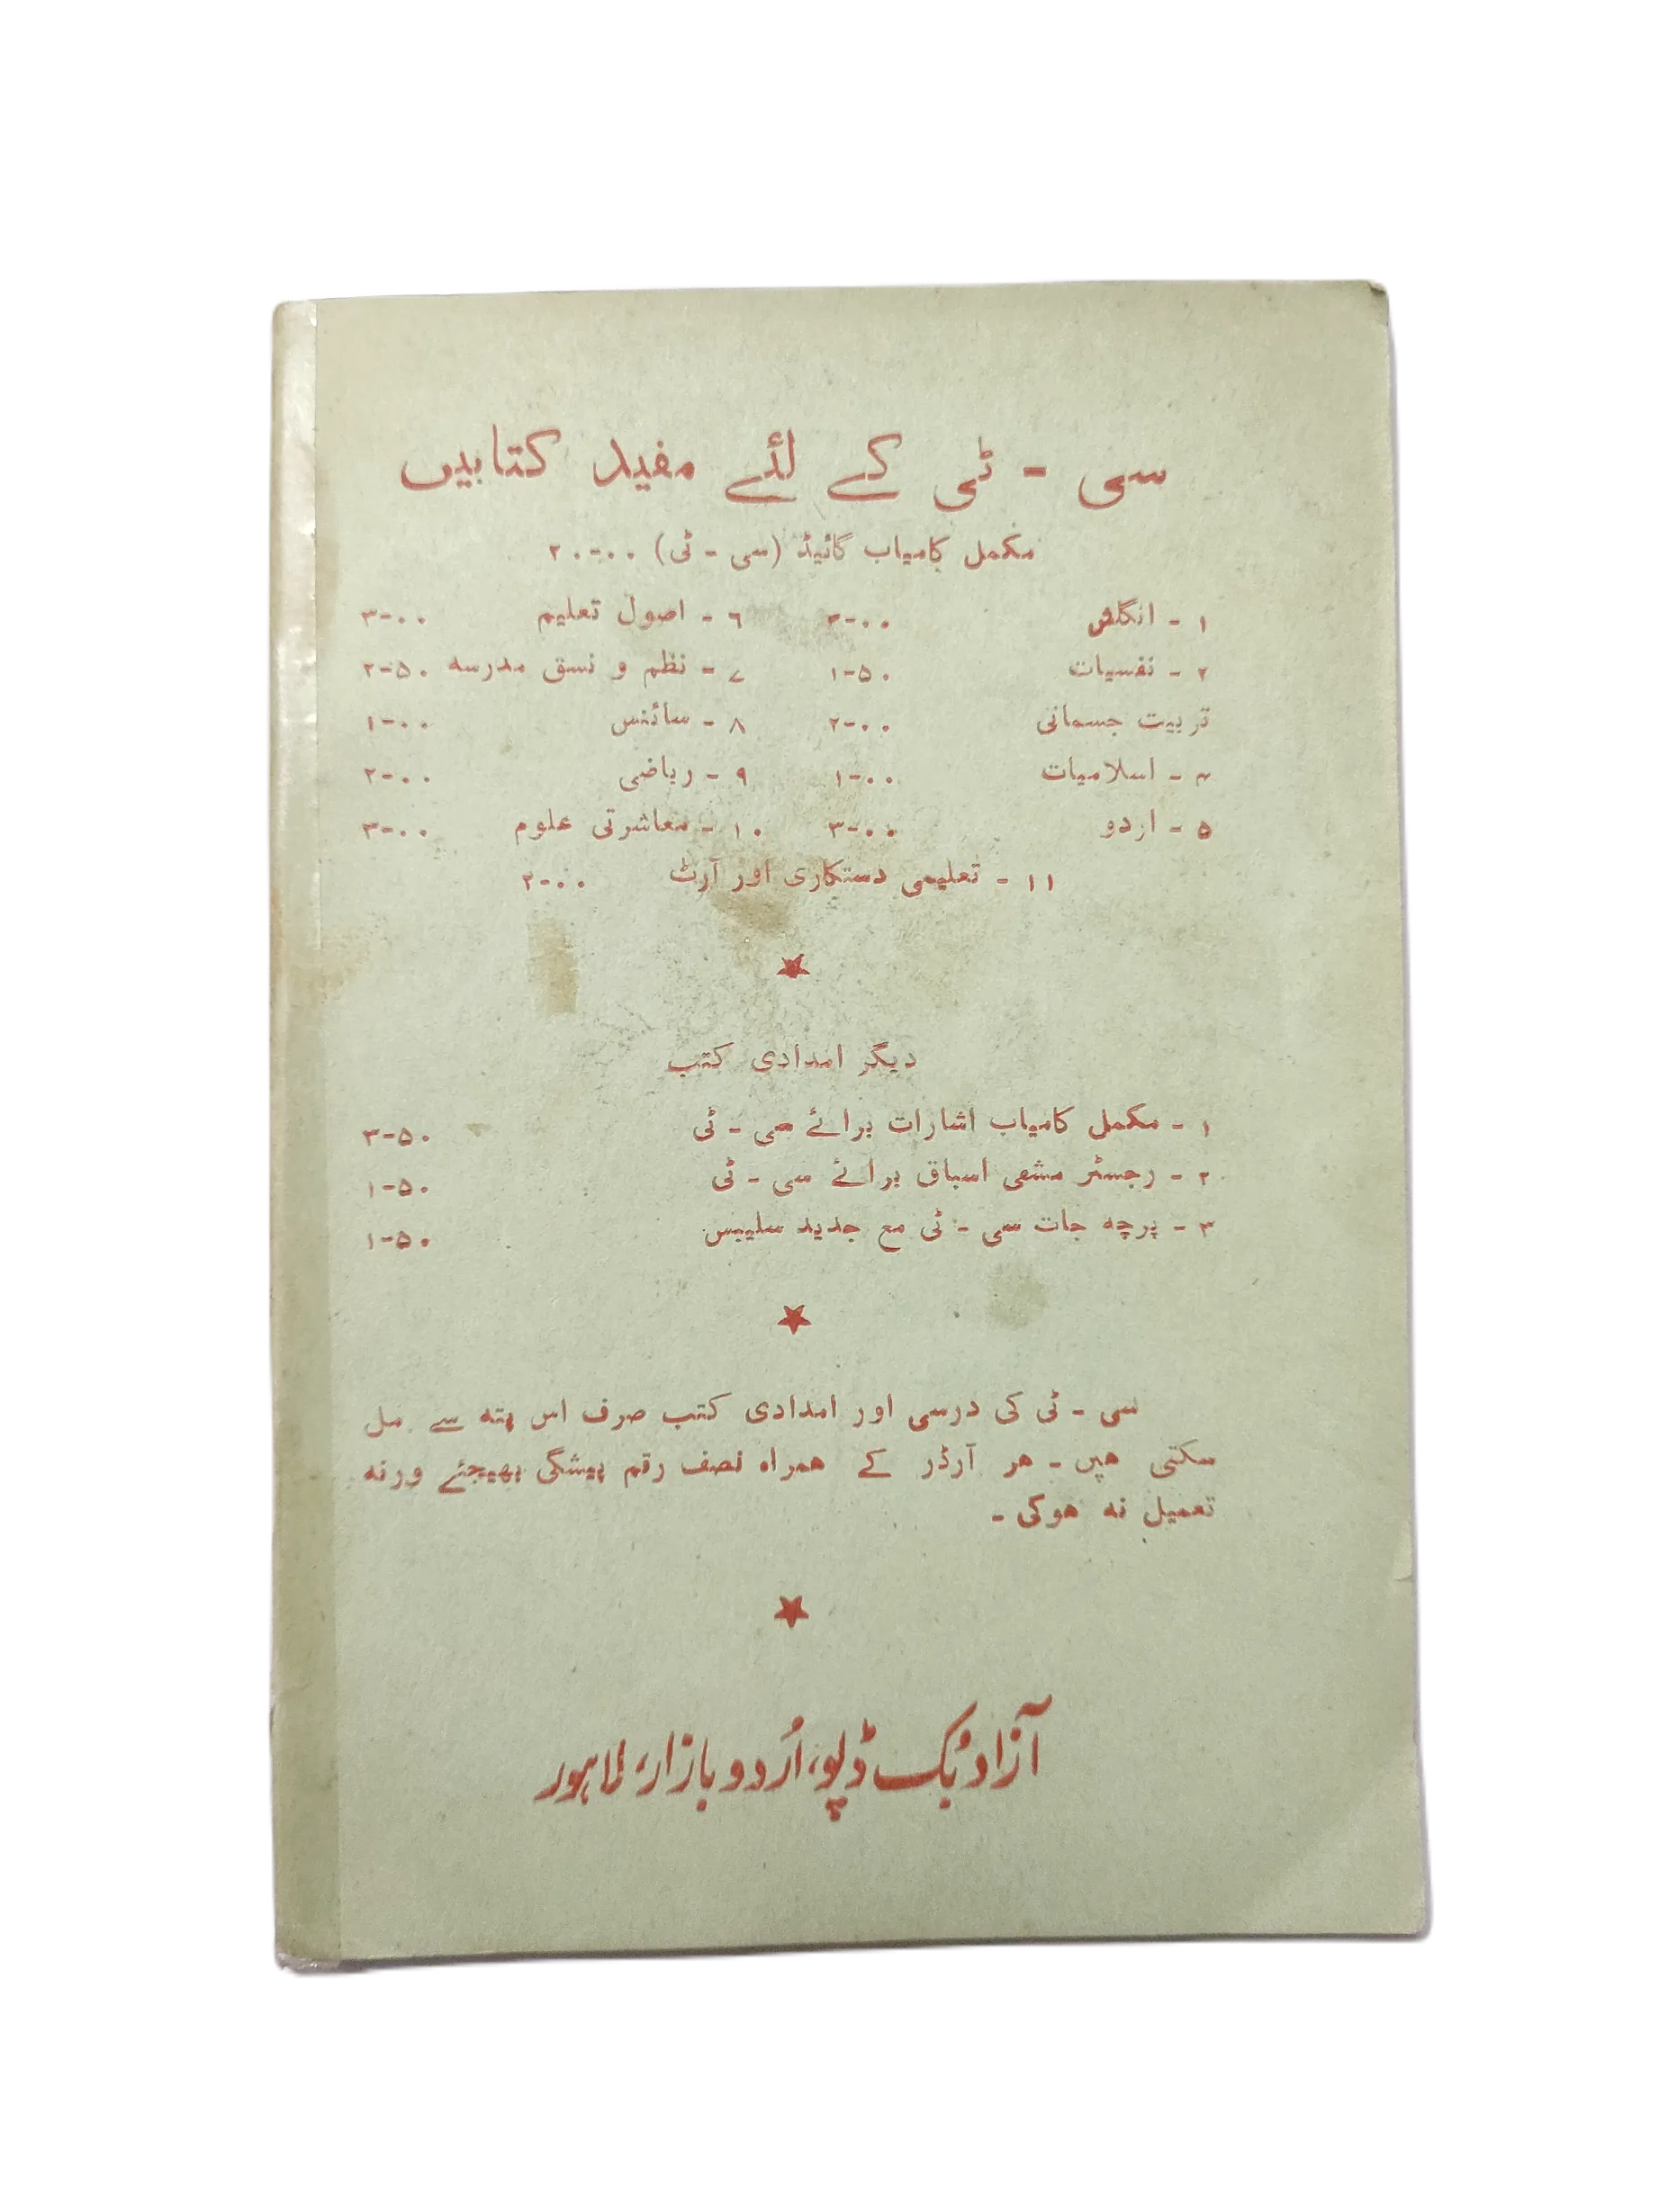 سی - ٹی کے لئے مفید کتابیں
مکمل کامیاب گائیڈ (سی - ٹی) ۰۰-۲۰
۱ - انگلش ۰۰-۳ ۶ - اصول تعلیم ۰۰-۳
۲ - نفسیات ۵۰-۱ ۷ - نظم و نسق مدرسہ ۵۰-۲
تربیت جسمانی ۰۰-۲ ۸ - سائنس ۰۰-۱
۴ - اسلامیات ۰۰-۱ ۹ - ریاضی ۰۰-۲
۵ - اردو ۰۰-۳ ۱۰ - معاشرتی علوم ۰۰-۳
۱۱ - تعلیمی دستکاری اور آرٹ ۰۰-۲
دیگر امدادی کتب
۱ - مکمل کامیاب اشارات برائے سی - ٹی ۵۰-۳
۲ - رجسٹر مشقی اسباق برائے سی - ٹی ۵۰-۱
۳ - پرچہ جات سی - ٹی مع جدید سلیبس ۵۰-۱
سی - ٹی کی درسی اور امدادی کتب صرف اس پتہ سے مل
سکتی ہیں - ہر آرڈر کے ہمراہ نصف رقم پیشگی بھیجئے ورنہ
تعمیل نہ ہوگی -
آزاد بُک ڈپو، اُردو بازار، لاہور